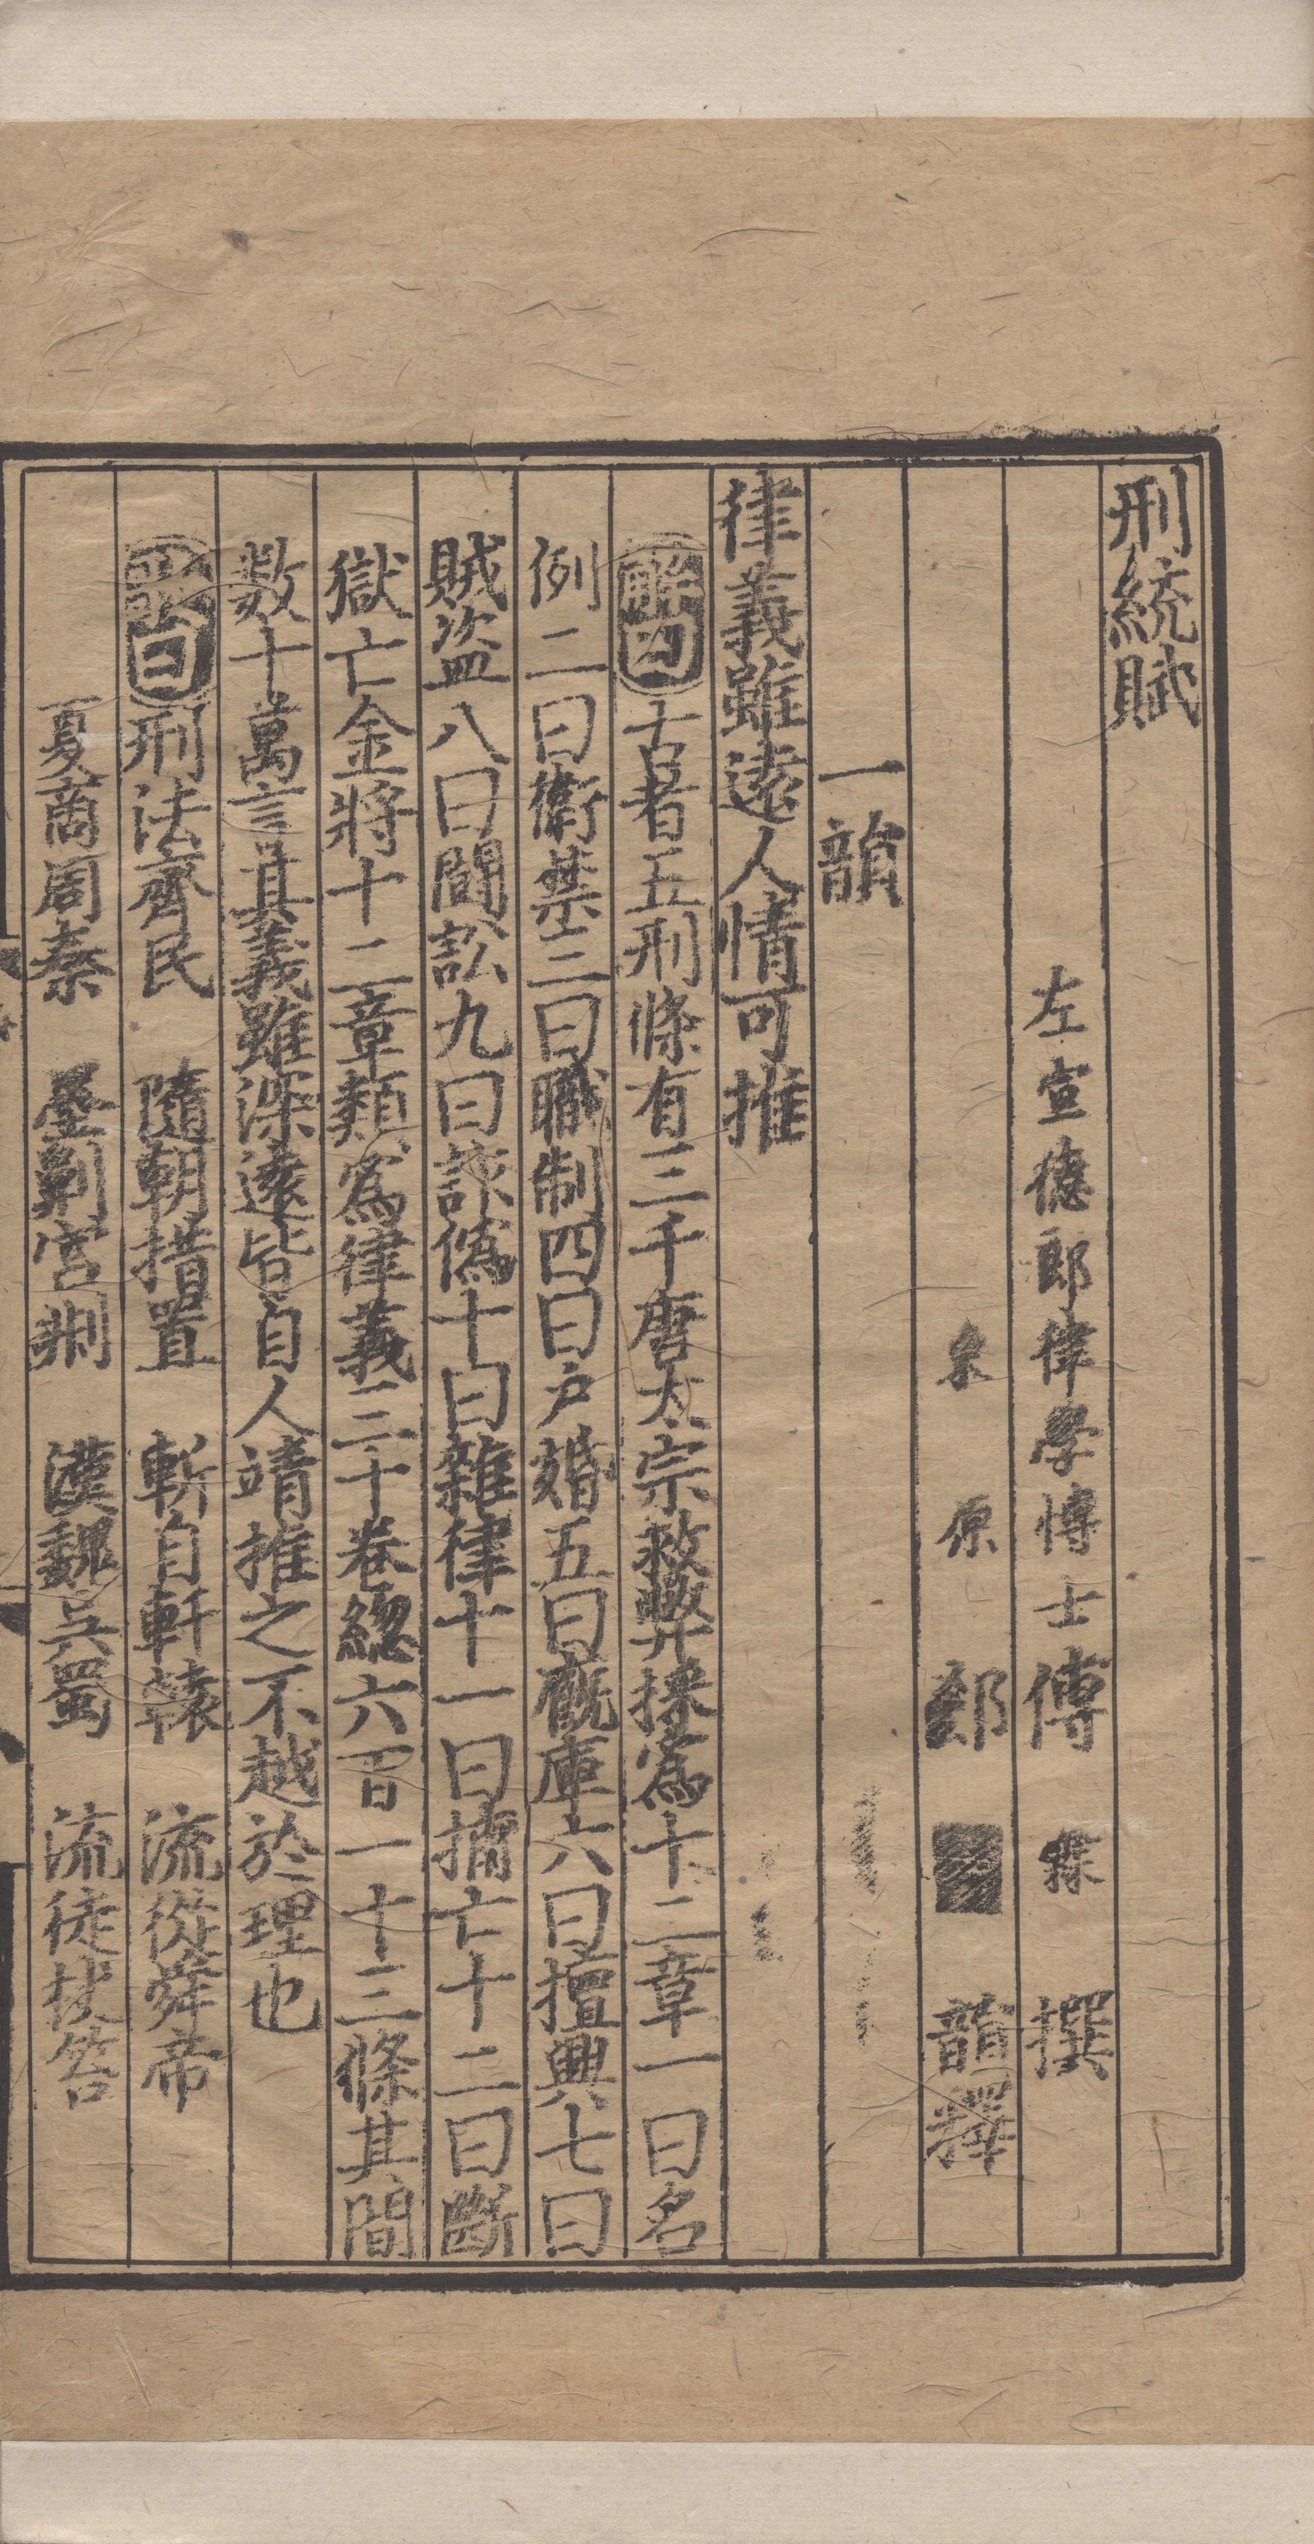 刑統賦
左宣德郎律學博士傅霖撰
東原郄■韻釋
一韻
律義雖遠人情可推
解曰古者五刑條有三千唐太宗救弊採為十二章一曰名
例二曰衛禁三曰職制四曰户婚五曰廐庫六曰擅興七曰
賊盜八曰鬪訟九曰詐偽十曰雜律十一曰捕亡十二曰斷
獄亡金將十二章類為律義三十卷緫六百一十三條其間
數十萬言其義雖深遠皆自人情推之不越於理也
歌曰刑法齊民　隨朝措置　斬自軒轅　流從舜帝
夏商周秦　墨劓宮剕　漢魏吳蜀　流徒杖笞